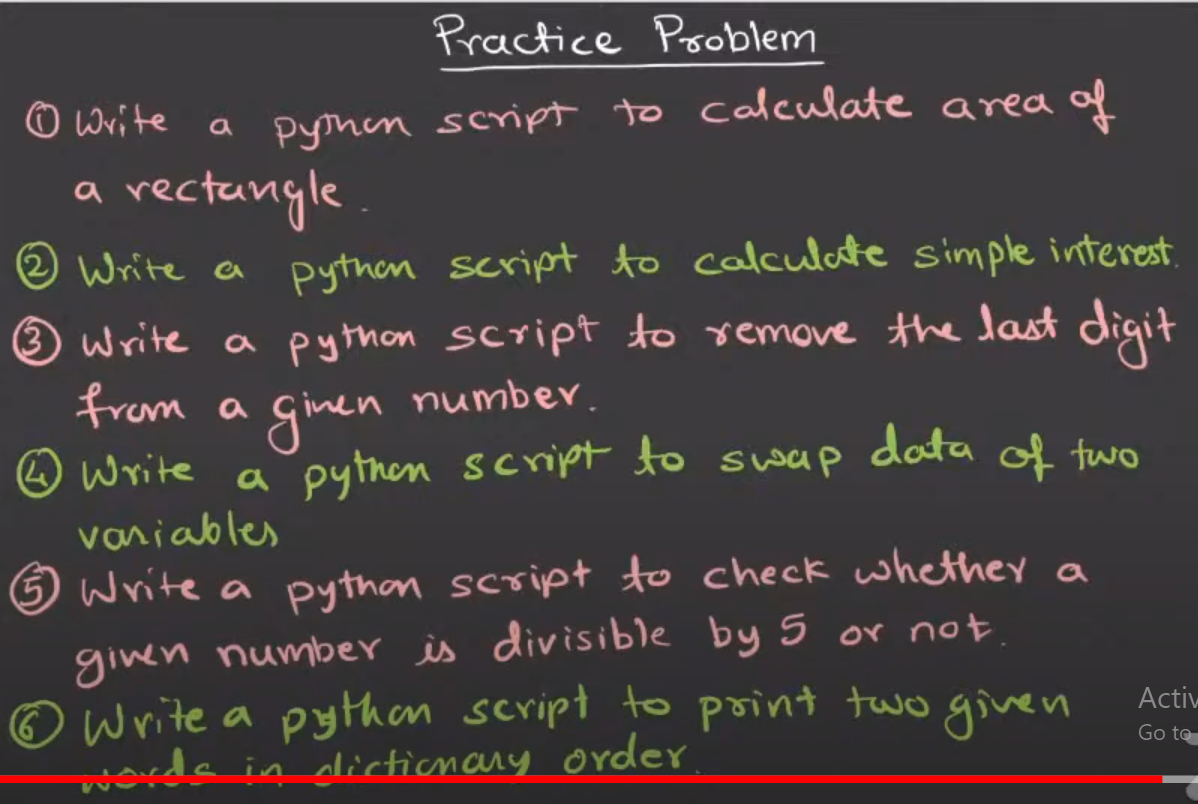 Practice Problem
① Write a python script to calculate area of
a rectangle.
② Write a python script to calculate simple interest.
③ Write a python script to remove the last digit
from a given number.
④ Write a python script to swap data of two
variables
⑤ Write a python script to check whether a
given number is divisible by 5 or not.
⑥ Write a python script to print two given
words in dictionary order.
Activ
Go to